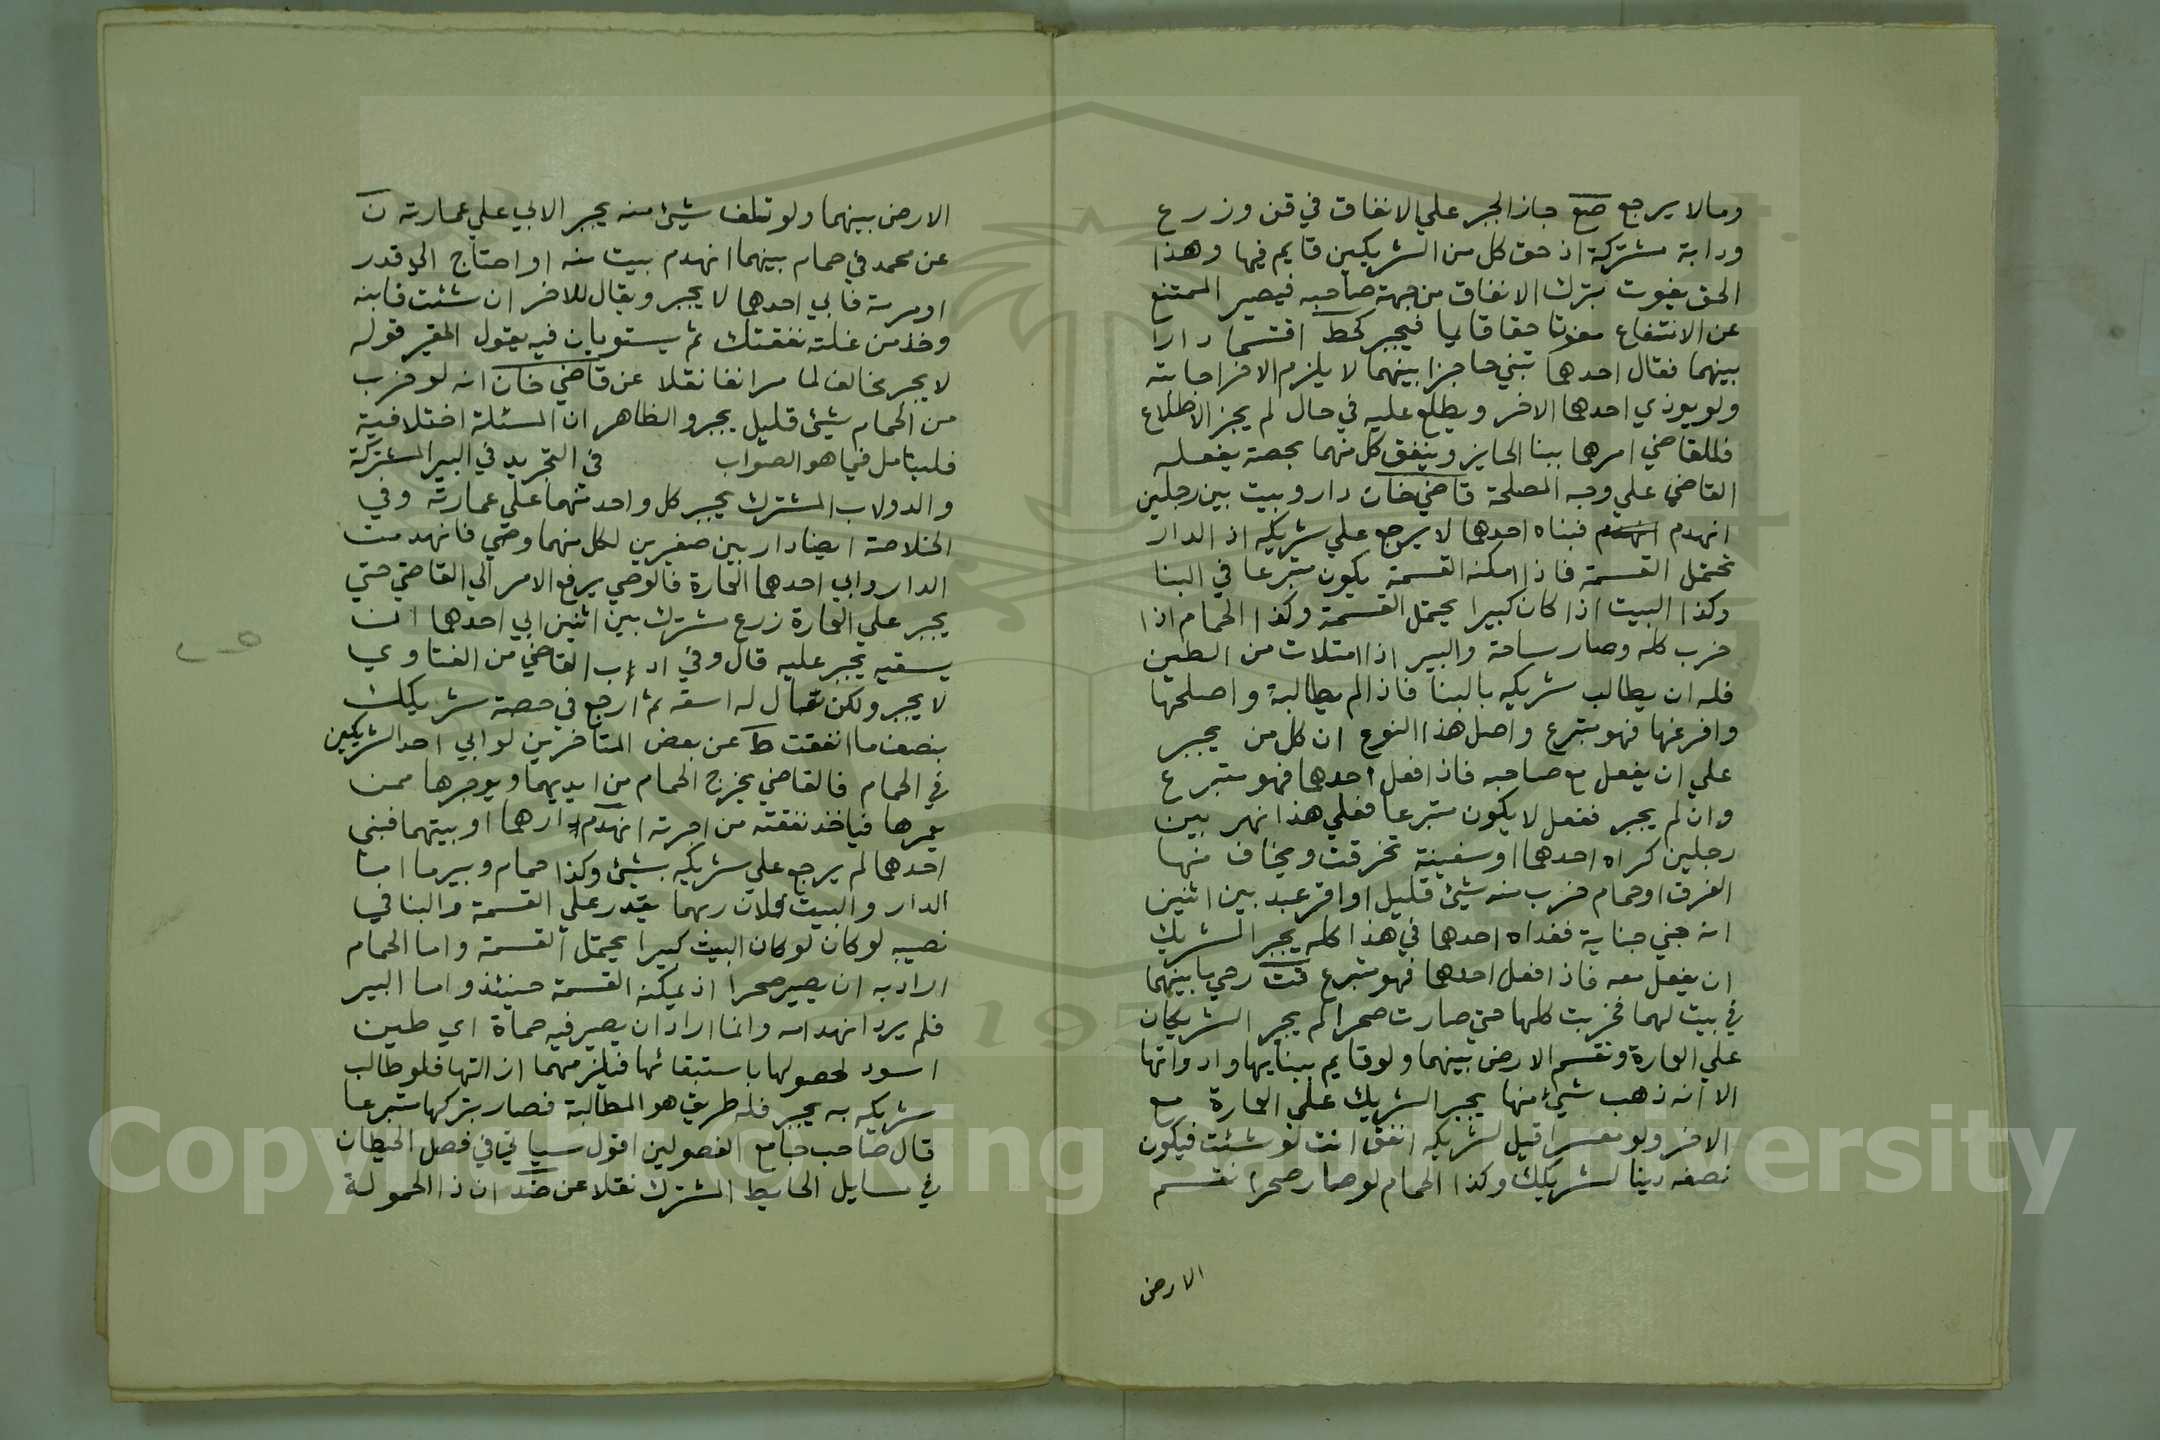 وما لا يرجع صع جاز الجبر علي الانفاق في قن وزرع
ودابة مشتركة اذ حق كل من الشريكين قايم فيها وهذا
الحق يفوت بترك الانفاق من جهة صاحبه فيصير الممتنع
عن الانتفاع مفوتا حقا قايما فيجبر كحط اقتسما دارا
بينهما فقال احدهما تبني حاجزا بينهما لا يلزم الاخر اجابته
ولو يوذي احدهما الاخر ويطلع عليه في حال لم يجز الاطلاع
فللقاضي امرهما ببنا الحايز وينفق كل منهما بحصة يفعله
القاضي علي وجه المصلحة قاضي خان دار وبيت بين رجلين
انهدم انهدم فبناه احدهما لا يرجع علي شريكه اذ الدار
تحتمل القسمة فاذا امكنه القسمة يكون متبرعا في البنا
وكذا البيت اذا كان كبيرا يحتمل القسمة وكذا الحمام اذا
خرب كله وصار ساحة والبير اذا امتلات من الطين
فله ان يطالب شريكه بالبنا فاذا لم يطالبه واصلحها
وافرغها فهو متبرع واصل هذا النوع ان كل من يجبر
علي ان يفعل مع صاحبه فاذا فعل احدهما فهو متبرع
وان لم يجبر ففعل لا يكون متبرعا فعلي هذا نهر بين
رجلين كراه احدهما او سفينة تخرقت ويخاف منها
الغرق او حمام خرب منه شيئ قليل او اقر عبد بين اثنين
انه جني جناية ففداه احدهما في هذا كله يجبر الشريك
ان يفعل معه فاذا فعل احدهما فهو متبرع فت رحي بابينهما
في بيت لهما فخربت كلها حتي صارت صحرا لم يجبر الشريكان
علي العمارة وتقسم الارض بينهما ولو قايم ببنايها وادواتها
الا انه ذهب شيئ منها يجبر الشريك علي العمارة مع
الاخر ولو معسرا قيل لشريكه انفق انت لو شئت فيكون
نصفه دينا لشريكك وكذا الحمام لو صار صحرا تقسم
الارض
الارض بينهما ولو تلف شيئ منه يجبر الابي علي عمارته ن
عن محمد في حمام بينهما انهدم بيت منه او احتاج الي قدر
او مرمة فابي احدهما لا يجبر ويقال للاخر ان شئت فابنه
وخذ من غلته نفقتك ثم يستويان فيه يقول الحقير قوله
لا يجبر مخالف لما مر انفا نقلا عن قاضي خان انه لو خرب
من الحمام شيئ قليل يجبر والظاهر ان المسئلة اختلافية
فليتامل فيما هو الصواب في التجريد في البير المشتركة
والدولاب المشترك يجبر كل واحد منهما علي عمارته وفي
الخلاصة ايضا دار بين صغيرين لكل منهما وصي فانهدمت
الدار وابي احدهما العمارة فالوصي يرفع الامر الي القاضي حتي
يجبر علي العمارة زرع مشترك بين اثنين ابي احدهما ان
يسقيه يجبر عليه قال وفي اداب القاضي من الفتاوي
لا يجبر ولكن يقال له اسقه ثم ارجع في حصة شريكك
بنصف ما انفقت ط عن بعض المتاخرين لو ابي احد الشريكين
في الحمام فالقاضي يخرج الحمام من ايديهما ويوجرها ممن
يعمرها فياخذ نفقته من اجرته انهدم دارهما او بيتهما فبني
احدهما لم يرجع علي شريكه بشيئ وكذا حمام وبير اما
الدار والبيت فلان ربهما يقدر علي القسمة والبنا في
نصيبه لو كان لو كان البيت كبيرا يحتمل القسمة واما الحمام
اراد به ان يصير صحرا اذ يمكنه القسمة حينئذ واما البير
فلم يرد انهدامه وانما اراد ان يصير فيه حماة اي طين
اسود لحصولها باستبقائها فيلزمهما ازالتها فلو طالب
شريكه به يجبر فله طريق هو المطالبة فصار بتركها متبرعا
قال صاحب جامع الفصولين اقول سياتي في فصل الحيطان
في مسايل الحايط المشترك نقلا عن ضد ان ذا الحمولة
Copyright © King Saud University
195